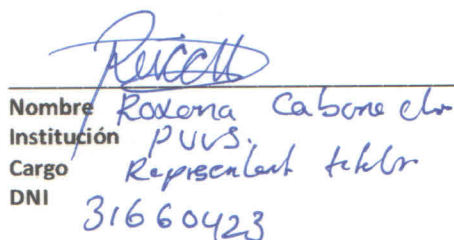 Nombre Roxana
Institución PUVS.
Cargo Representant
DNI 31660423